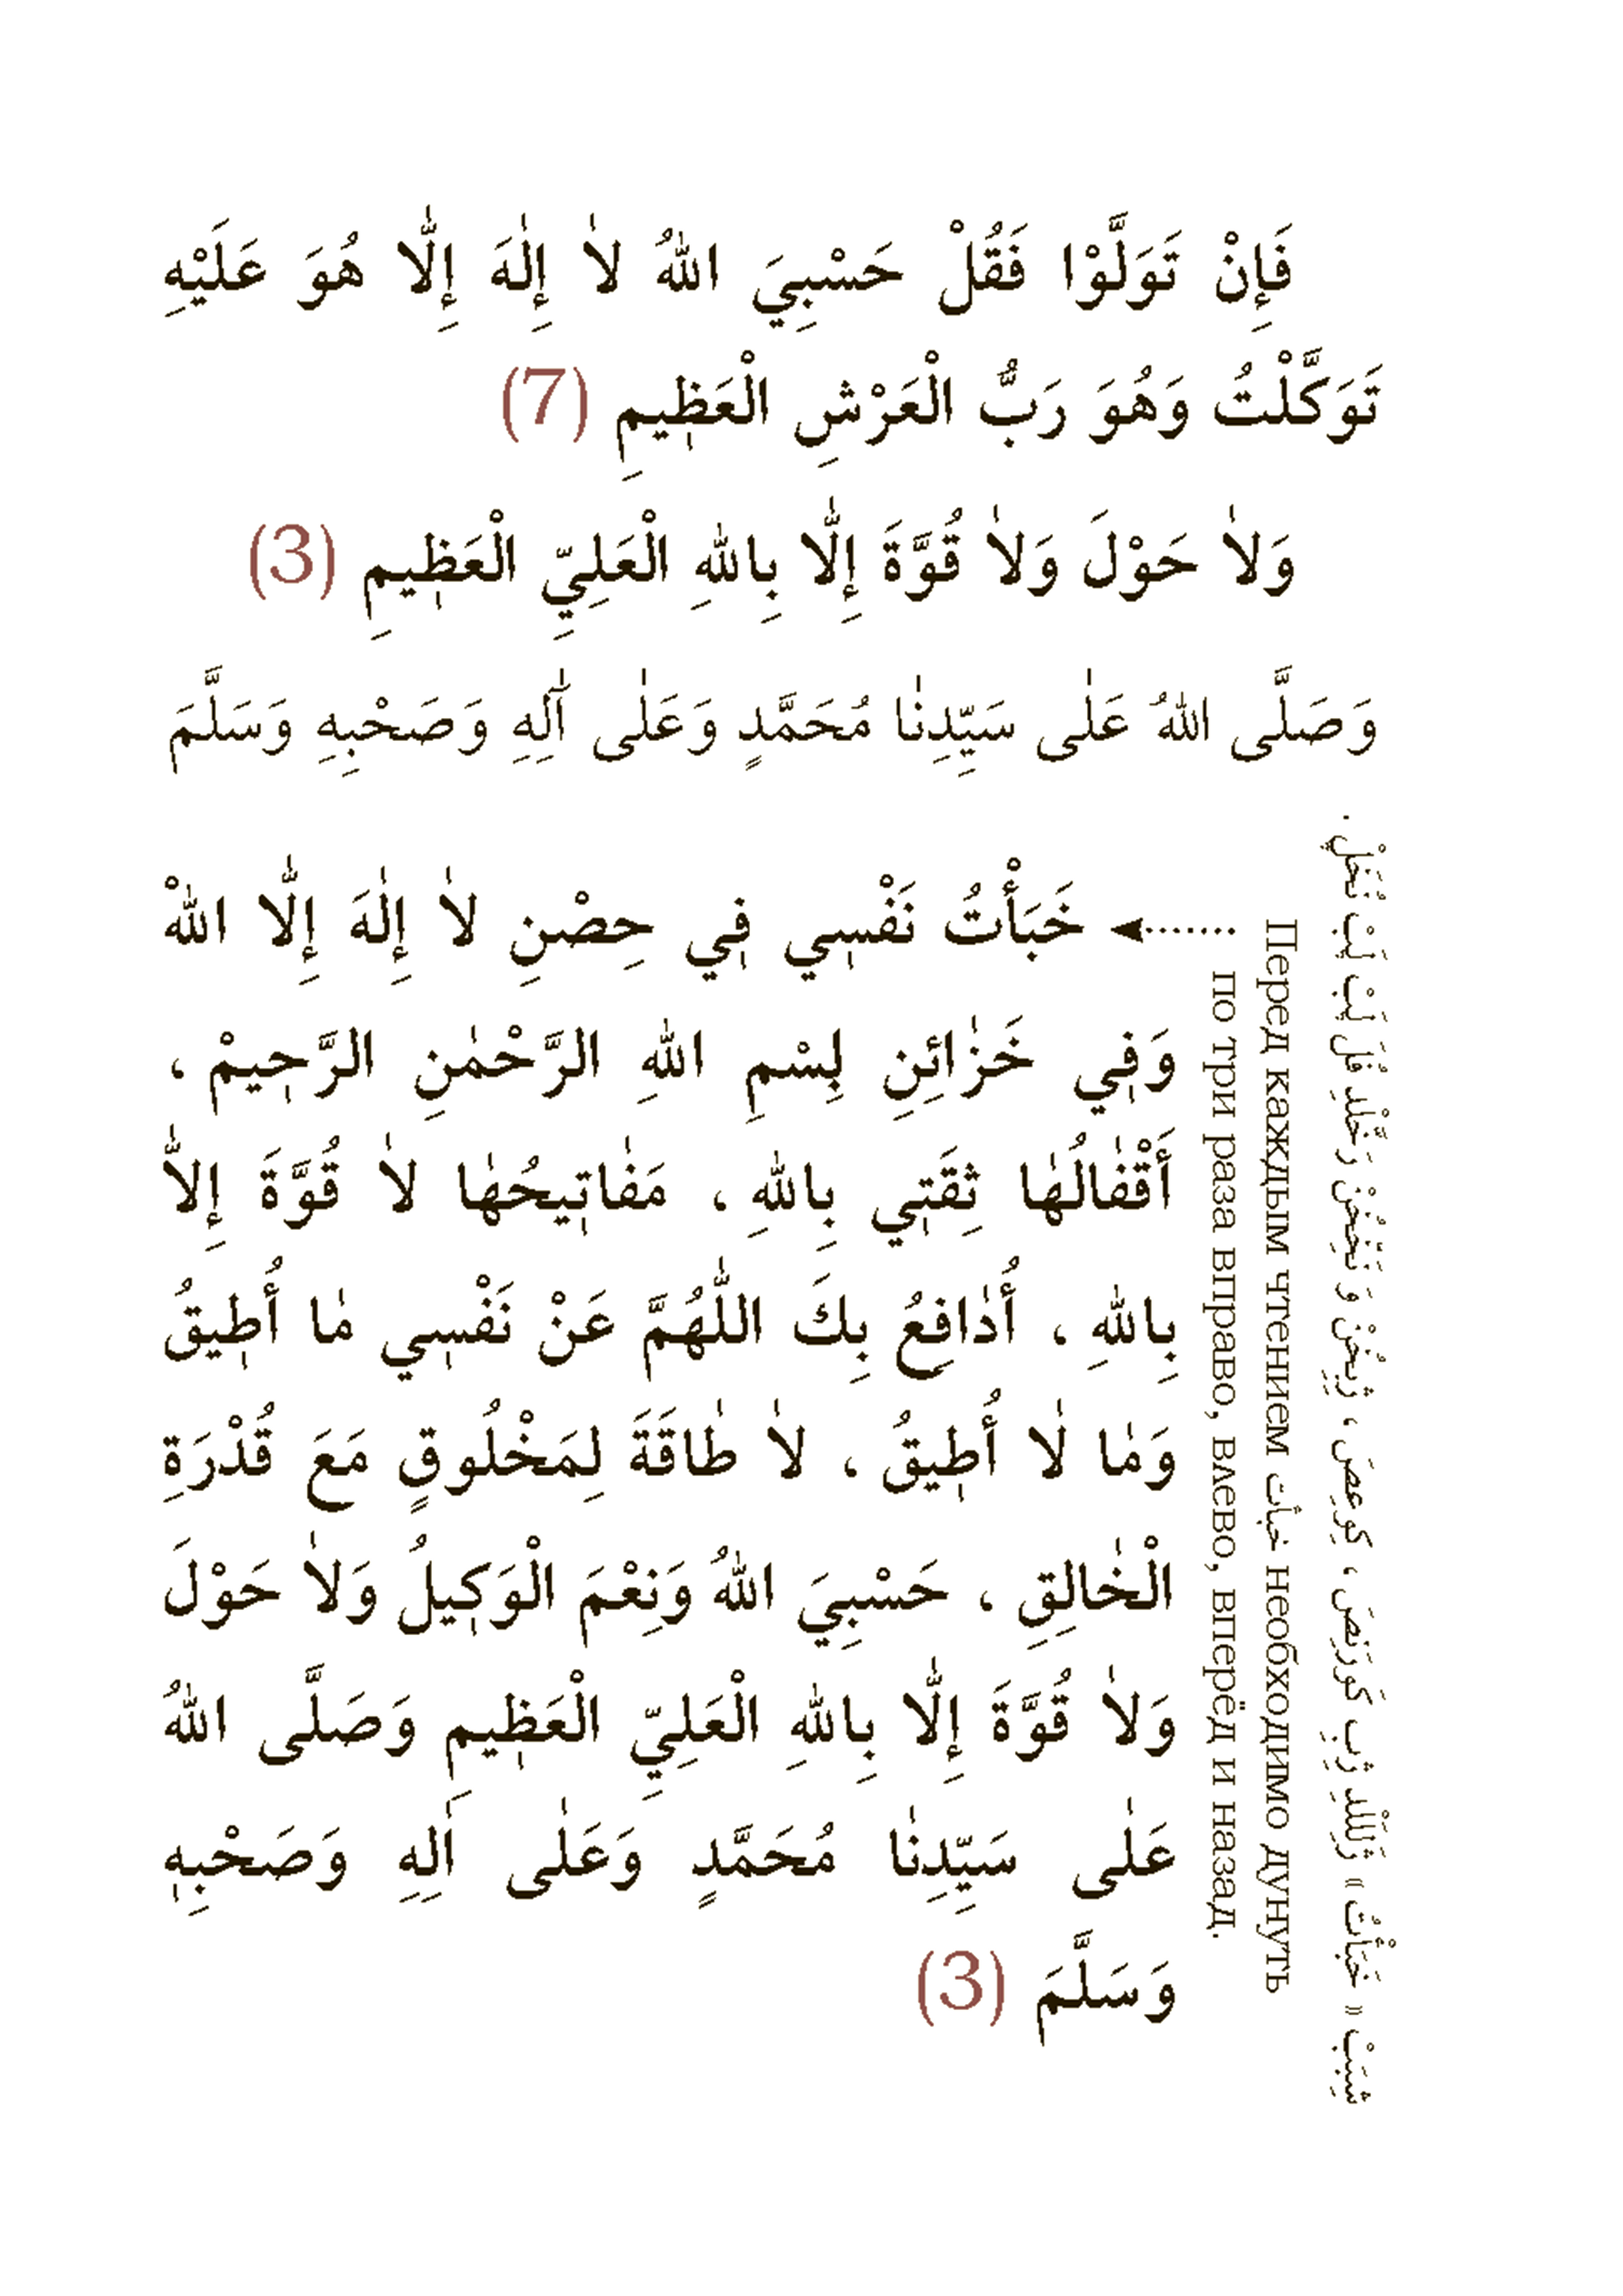 فَإِنْ تَوَلَّوْا فَقُلْ حَسْبِيَ اللهُ لاٰ إِلٰهَ إِلَّا هُوَ عَلَيْهِ
تَوَكَّلْتُ وَهُوَ رَبُّ الْعَرْشِ الْعَظٖيمِ (7)
وَلاٰ حَوْلَ وَلاٰ قُوَّةَ إِلَّا بِاللهِ الْعَلِيِّ الْعَظٖيمِ (3)
وَصَلَّى اللهُ عَلٰى سَيِّدِنٰا مُحَمَّدٍ وَعَلٰى آلِهِ وَصَحْبِهِ وَسَلَّمَ
خَبَأْتُ نَفْسٖي فٖي حِصْنِ لاٰ إِلٰهَ إِلَّا اللهْ
وَفٖي خَزٰائِنِ بِسْمِ اللهِ الرَّحْمٰنِ الرَّحٖيمْ ،
أَقْفٰالُهٰا ثِقَتٖي بِاللهِ ، مَفٰاتٖيحُهٰا لاٰ قُوَّةَ إِلاَّ
بِاللهِ ، أُدٰافِعُ بِكَ اللّٰهُمَّ عَنْ نَفْسٖي مٰا أُطٖيقُ
وَمٰا لٰا أُطٖيقُ ، لاٰ طٰاقَةَ لِمَخْلُوقٍ مَعَ قُدْرَةِ
الْخٰالِقِ ، حَسْبِيَ اللهُ وَنِعْمَ الْوَكٖيلُ وَلاٰ حَوْلَ
وَلاٰ قُوَّةَ إِلَّا بِاللهِ الْعَلِيِّ الْعَظٖيمِ وَصَلَّى اللهُ
عَلٰى سَيِّدِنٰا مُحَمَّدٍ وَعَلٰى اٰلِهِ وَصَحْبِهٖ
وَسَلَّمَ (3)
Перед каждым чтением خبأت необходимо дунуть
по три раза вправо, влево, вперёд и назад.
« خَبَأْتُ »